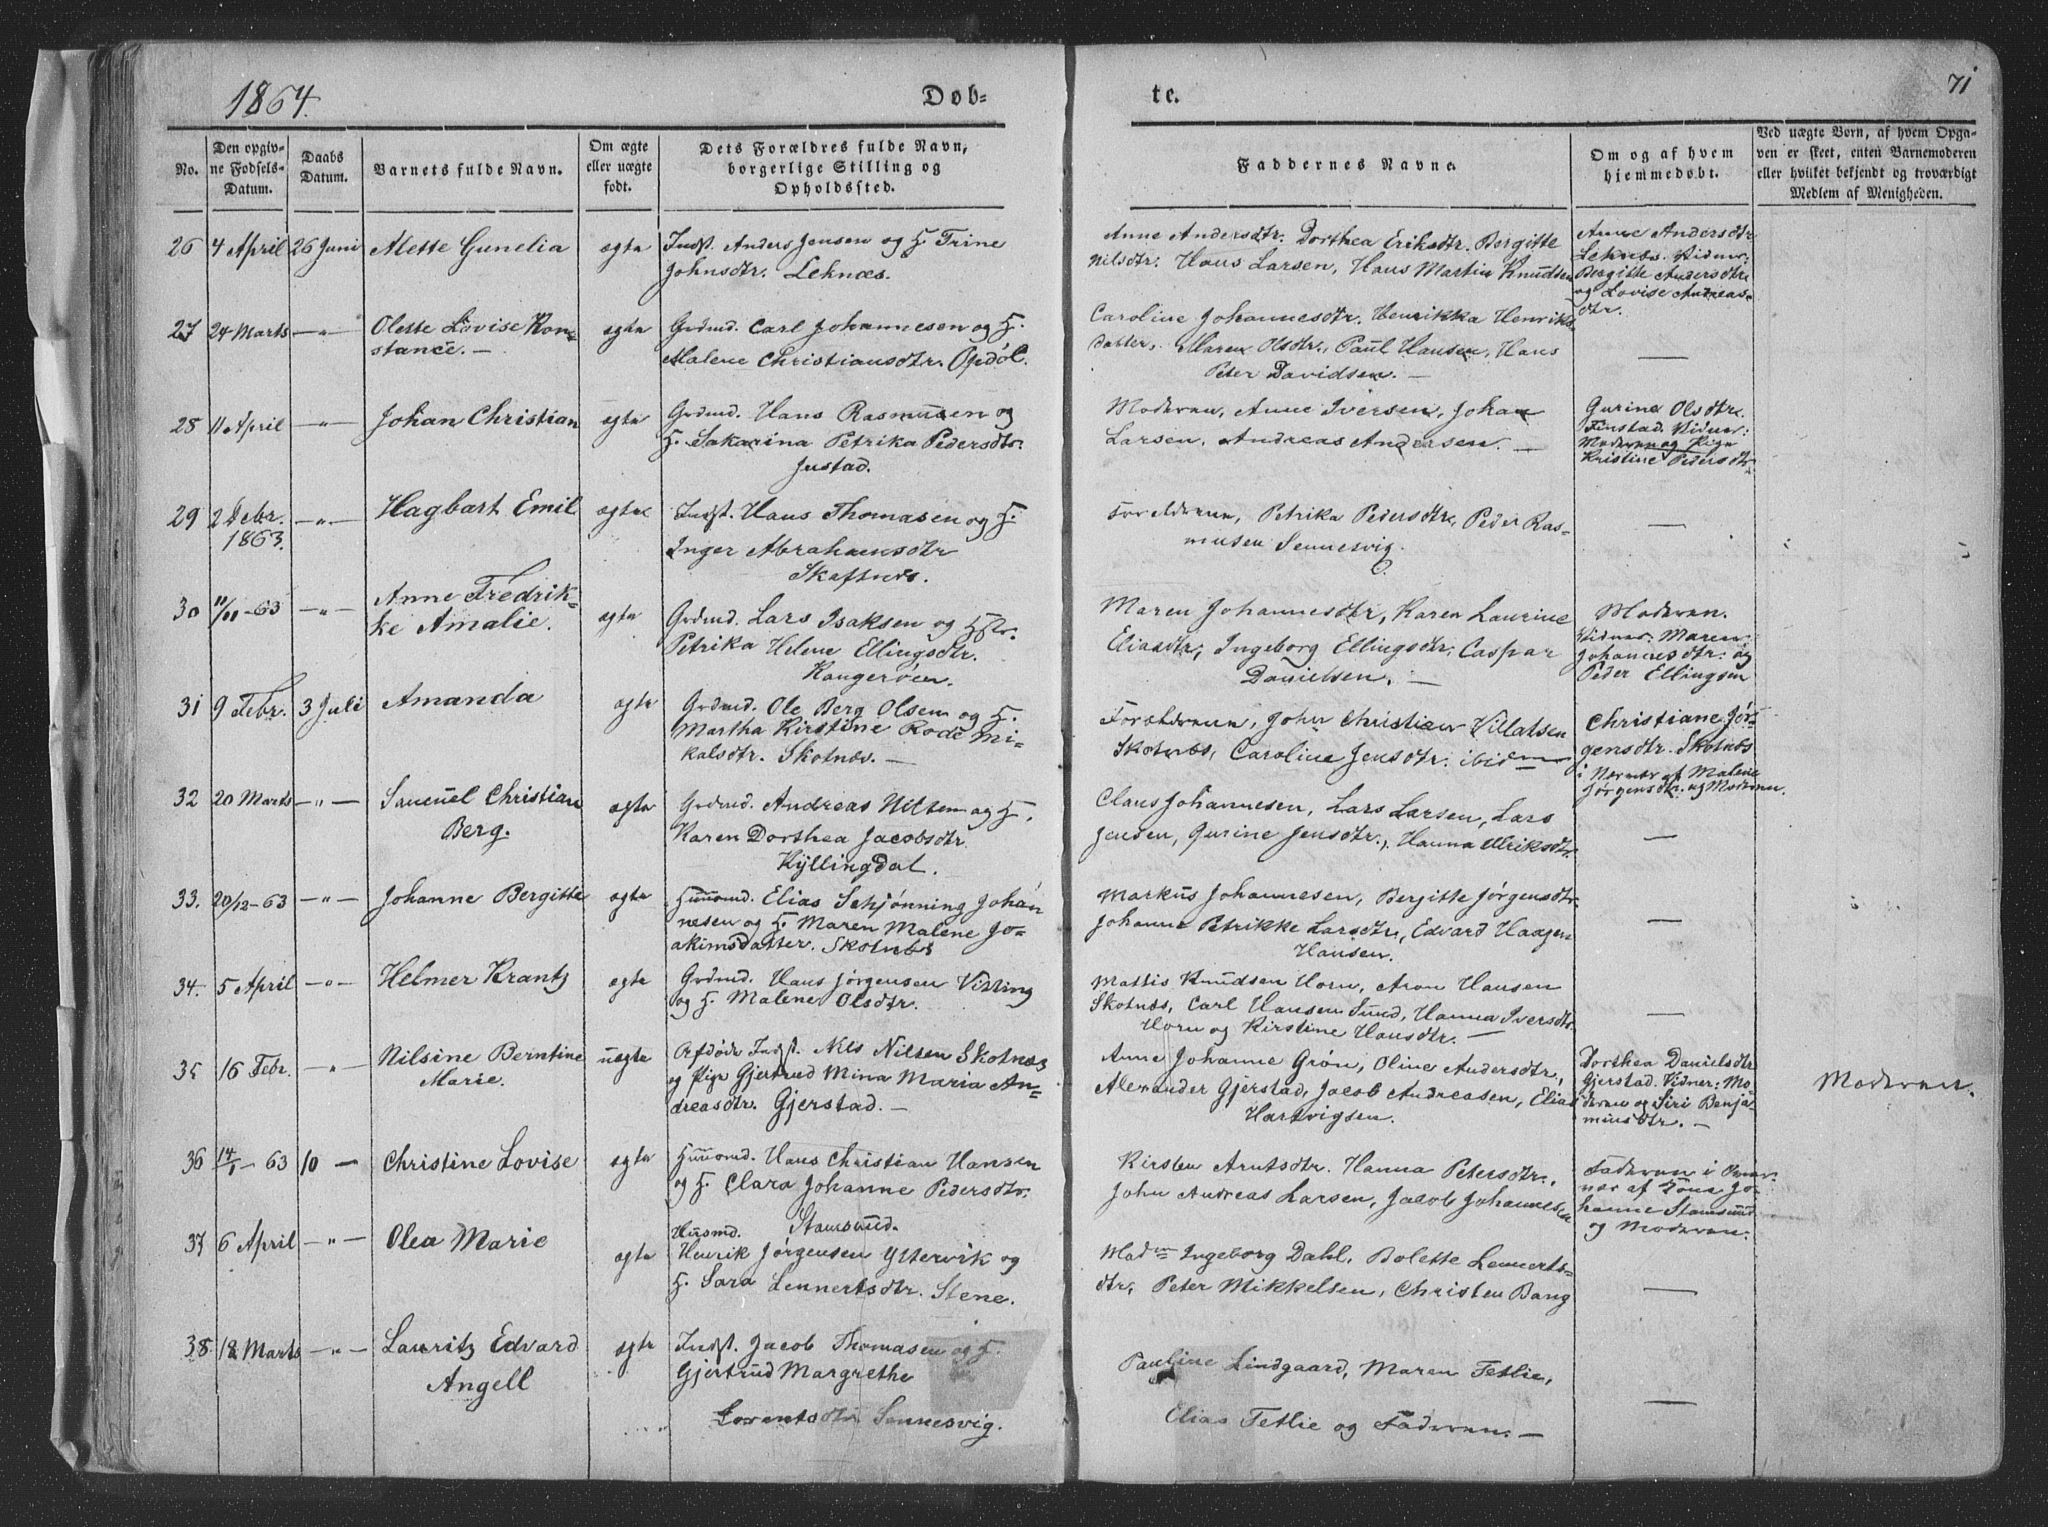 1864.
Døb-
te.
71
No.
Den opgiv-
ne Fødsels-
Datum.
Daabs
Datum.
Barnets fulde Navn.
Om ægte
eller uægte
født.
Dets Forældres fulde Navn,
borgerlige Stilling og
Opholdssted.
Faddernes Navne.
Om og af hvem
hjemmedøbt.
Ved uægte Børn, af hvem Opga-
ven er skeet, enten Barnemoderen
eller hvilket bekjendt og troværdigt
Medlem af Menigheden.
26 4 April 26 Juni Alette Gunelia ægte Indst. Anders Jensen og H. Trine
Johnsdtr. Leknæs.
Anne Andersdtr. Dorthea Eriksdtr. Bergitte
Nilsdtr. Hans Larsen, Hans Martin Knudsen
Anne Andersdtr
Leknæs. Vidner:
Bergitte Andersdtr
og Lovise Andreas-
dtr.
27 24 Marts —"— Olette Lovise Kon-
stance. — ægte Grdmd. Carl Johannesen og H.
Malene Christiansdtr. Opdøl.
Caroline Johannesdtr. Henrikka Henriks-
datter, Maren Olsdtr., Paul Hansen, Hans
Peter Davidsen. —
—
28 11 April —"— Johan Christian ægte Grdmd. Hans Rasmusen og
H. Sakarina Petrika Pedersdtr.
Justad.
Moderen, Anne Iversen, Johan
Larsen, Andreas Andersen. —
Gurine Olsdtr.
Finstad. Vidner:
Moderen og Pige
Kristine Pedersdtr.
29 2 Febr.
1863. —"— Hagbart Emil ægte Indst. Hans Thomasen og H.
Inger Abrahamsdtr
Skaftnæs.
Forældrene, Petrika Pedersdtr, Peder Ras-
musen Sennesvig.
—
30 11/11 - 63 —"— Anne Fredrik-
ke Amalie. ægte Grdmd. Lars Isaksen og Hstr.
Petrika Helene Ellingsdtr.
Kangerøen.
Maren Johannesdtr, Karen Laurine
Eliasdtr, Ingeborg Ellingsdtr, Caspar
Danielsen. —
Moderen.
Vidner: Maren
Johannesdtr. og
Peder Ellingsen
31 9 Febr. 3 Juli Amanda ægte Grdmd. Ole Berg Olsen og H.
Martha Kirstine Rode Mi-
kalsdtr. Skotnæs. —
Forældrene, John Christian Villatsen
Skotnæs, Caroline Jensdtr. ibidem
Christiane Jør-
gensdtr. Skotnæs
i Nærvær af Malene
Jørgensdtr. og Moderen.
32 20 Marts —"— Samuel Christian
Berg. ægte Grdmd. Andreas Nilsen og H.
Karen Dorthea Jacobsdtr.
Kyllingdal.
Claus Johannesen, Lars Larsen, Lars
Jensen, Gurine Jensdtr., Hanna Ulriksdtr.
—
33. 20/12 - 63 —"— Johanne Bergitte ægte Huusmd. Elias Schjønning Johan
nesen og H. Maren Malene Jo-
akimsdatter. Skotnæs
Markus Johannesen, Bergitte Jørgensdtr.
Johanna Petrikke Larsdtr, Edvard Haagen
Hansen.
—
34. 5 April —"— Helmer Krantz ægte Grdmd. Hans Jørgensen Vitting
og H. Malene Olsdtr.
Mattis Knudsen Horn, Aron Hansen
Skotnæs, Carl Hansen Sund, Hanna Iversdtr.
Horn og Kirstine Hansdtr. —
—
35 16 Febr. —"— Nilsine Berntine
Marie. uægte Afdøde Indst. Nils Nilsen Skotnæs
og Pige Gjertrud Mina Maria An-
dreasdtr. Gjerstad. —
Anne Johanne Grøn, Oline Andersdtr,
Alexander Gjerstad, Jacob Andreasen, Elias
Hartvigsen.
Dorthea Danielsdtr
Gjerstad. Vidner: Mo-
deren og Siri Benja-
minsdtr. —
Moderen.
36 14/1 - 63 10 — Christine Lovise ægte Huusmd. Hans Christian Hansen
og H. Clara Johanne Pedersdtr.
Stamsund.
Kirsten Arntsdtr. Hanna Petersdtr.,
John Andreas Larsen, Jacob Johannesen
Faderen i Nær-
vær af Kone Jo-
hanne Stamsund
og Moderen.
37 6 April —"— Olea Marie ægte Huusmd.
Henrik Jørgensen Yttervik og
H. Sara Lennertsdtr. Stene.
Madm Ingeborg Dahl. Bolette Lennerts-
dtr, Peter Mikkelsen, Christen Bang
—
38. 18 Marts —"— Lauritz Edvard
Angell ægte Indst. Jacob Thomasen og H.
Gjertrud Margrethe
Lorentsdtr Sennesvig.
Pauline Lindgaard, Maren Fetlie,
Elias Fetlie og Faderen. —
—